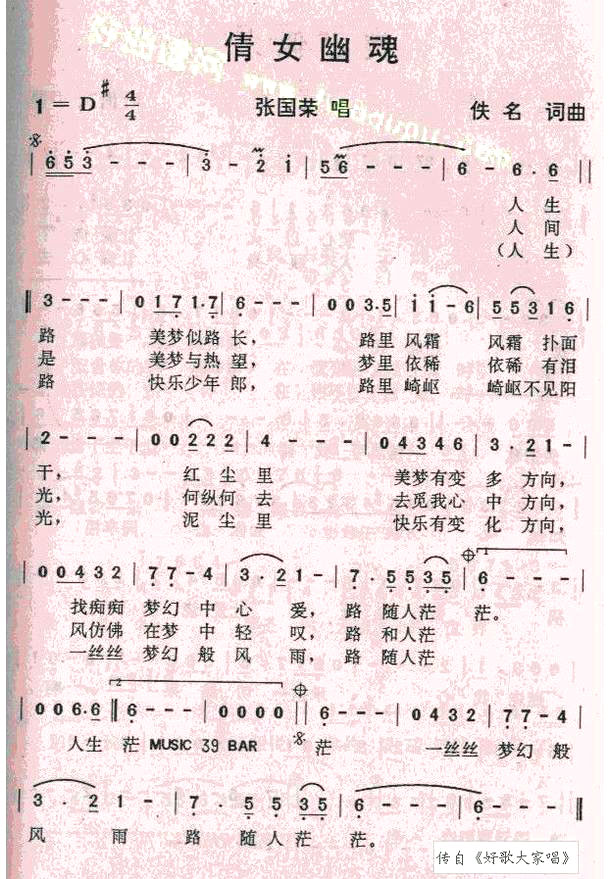 倩女幽魂
1=D♯ 4/4 张国荣 唱 佚名 词曲
| 6 5 3 - - - | 3 - 2 i | 5 6 - - - | 6 - 6 . 6 |
人 生
人 间
(人 生)
‖ 3 - - - | 0 1 7 1 . 7 | 6 - - - | 0 0 3 . 5 | i i - 6 | 5 5 3 1 6 |
路 美梦似路长, 路里风霜 风霜扑面
是 美梦与热望, 梦里依稀 依稀有泪
路 快乐少年郎, 路里崎岖 崎岖不见阳
| 2 - - - | 0 0 2 2 2 | 4 - - - | 0 4 3 4 6 | 3 . 2 1 - |
干, 红尘里 美梦有变多方向,
光, 何纵何去 去觅我心中方向,
光, 泥尘里 快乐有变化方向,
| 0 0 4 3 2 | 7 7 - 4 | 3 . 2 1 - | 7 . 5 5 3 5 | 1 6 - - - |
找痴痴 梦幻中心爱, 路随人茫 茫。
风仿佛 在梦中轻叹, 路和人茫
一丝丝 梦幻般风雨, 路随人茫
2
| 0 0 6 . 6 ‖ 6 - - - | 0 0 0 0 ‖ 6 - - - | 0 4 3 2 | 7 7 - 4 |
人生 茫 MUSIC 39 BAR 茫 一丝丝 梦幻般
| 3 . 2 1 - | 7 . 5 5 3 5 | 6 - - - | 6 - - - ‖
风 雨 路 随人茫 茫。
传自《好歌大家唱》